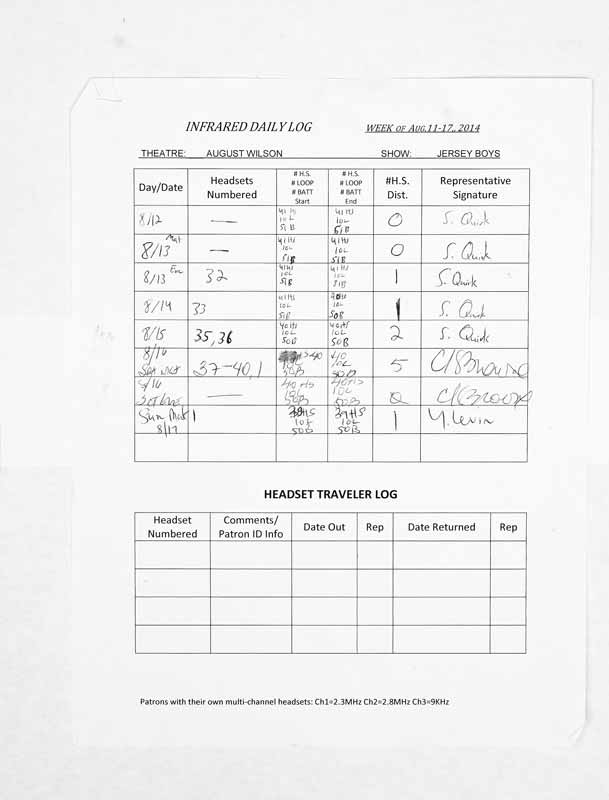 INFRARED DAILY LOG WEEK OF AUG.11-17, 2014
THEATRE: AUGUST WILSON SHOW: JERSEY BOYS
Day/Date Headsets Numbered # H.S. # LOOP # BATT Start # H.S. # LOOP # BATT End #H.S. Dist. Representative Signature
8/12 — 41 HS 10L 51B 41 HS 10L 51B 0 S. Quirk
8/13 Mat — 41 HS 10L 51B 41 HS 10L 51B 0 S. Quirk
8/13 Eve 32 41HS 10L 51B 41HS 10L 51B 1 S. Quirk
8/14 33 41HS 10L 51B 50B 1 S. Quirk
8/15 35, 36 40HS 10L 50B 40HS 10L 50B 2 S. Quirk
8/16 Sat Mat 37-40, 1 40 10L 50B 40 10L 50B 5
8/16 — 40HS 10L 50B 40HS 10L 50B
Sun Mat 8/17 1 39HS 10L 50B 39HS 10L 50B 1 Y. Levin
HEADSET TRAVELER LOG
Headset Numbered Comments/ Patron ID Info Date Out Rep Date Returned Rep
Patrons with their own multi-channel headsets: Ch1=2.3MHz Ch2=2.8MHz Ch3=9KHz